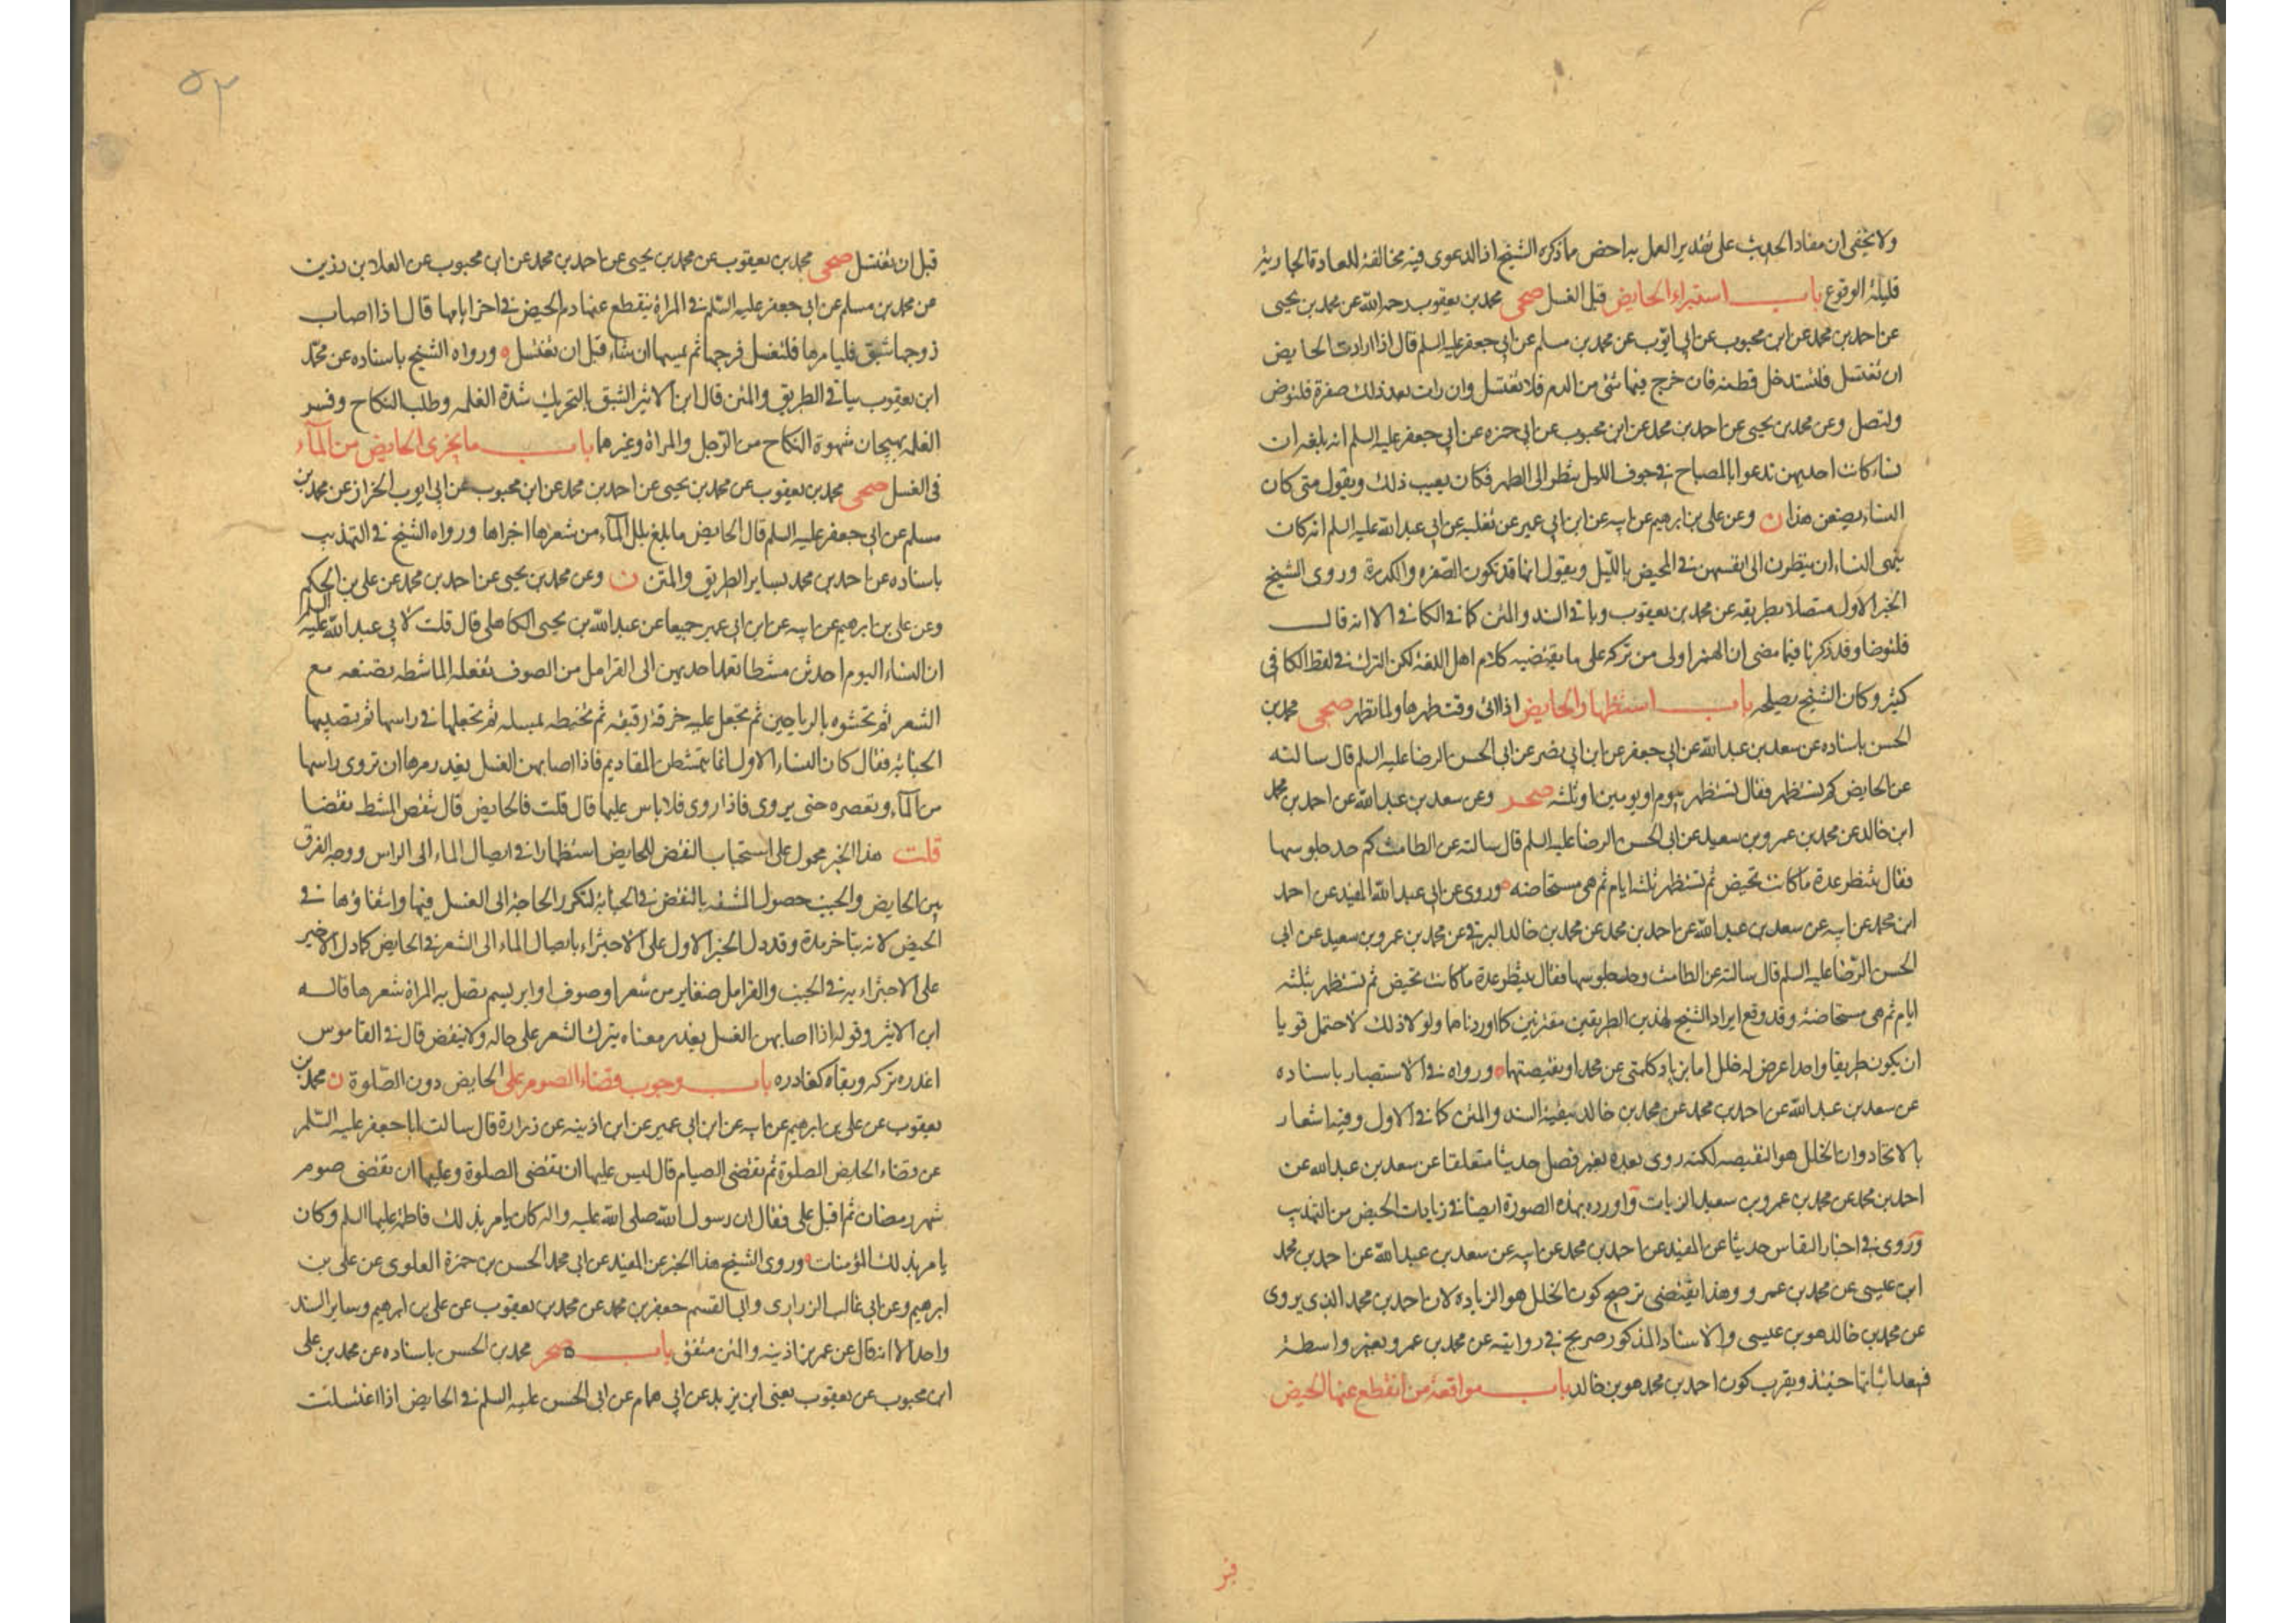 ولا يخفى ان مفاد الحديث على تقدير العمل به اخص ما ذكره الشيخ اذ الدعوى فيه مخالفة للعادة الجارية
قليلة الوقوع باب استبراء الحايض قبل الغسل صحى محمد بن يعقوب رحمه الله عن محمد بن يحيى
عن احمد بن محمد عن ابن محبوب عن ابى ايوب عن محمد بن مسلم عن ابى جعفر عليه السلم قال اذا ارادت الحايض
ان تغتسل فلتستدخل قطنه فان خرج فيها شئ من الدم فلا تغتسل وان رات بعد ذلك صفرة فلتوض
ولتصل وعن محمد بن يحيى عن احمد بن محمد عن ابن محبوب عن ابى حمزه عن ابى جعفر عليه السلم انه بلغه ان
نساء كانت احديهن تدعوا بالمصباح فى جوف الليل تنظر الى الطهر فكان يعيب ذلك ويقول متى كان
النساء يصنعن هذا ن وعن على بن ابرهيم عن ابيه عن ابن ابى عمير عن ثعلبه عن ابى عبد الله عليه السلم انه كان
ينهى النساء ان ينظرن الى انفسهن فى المحيض بالليل ويقول انها قد تكون الصفره والكدرة وروى الشيخ
الخبر الاول متصلا بطريقه عن محمد بن يعقوب وباقى السند والمتن كما فى الكافى الا انه قال
فلتوضا وقد ذكرنا فيما مضى ان الهمز اولى من تركه على ما يقتضيه كلام اهل اللغة لكن الترك فى لفظ الكافى
كثير وكان الشيخ يصلحه باب استظهار الحايض اذا اتى وقت طهرها ولما تطهر صحى محمد بن
الحسن باسناده عن سعد بن عبد الله عن ابى جعفر عن ابن ابى نصر عن ابى الحسن الرضا عليه السلم قال سالته
عن الحايض كم تستظهر فقال تستظهر بيوم او يومين او ثلثه صحر وعن سعد بن عبد الله عن احمد بن محمد
ابن خالد عن محمد بن عمرو بن سعيد عن ابى الحسن الرضا عليه السلم قال سالته عن الطامث كم حد جلوسها
فقال تنتظر عدة ما كانت تحيض ثم تستظهر ثلثه ايام ثم هى مستحاضه وروى عن ابى عبد الله المفيد عن احمد
ابن محمد عن ابيه عن سعد بن عبد الله عن احمد بن محمد عن محمد بن خالد البرقى عن محمد بن عمرو بن سعيد عن ابى
الحسن الرضا عليه السلم قال سالته عن الطامث وحد جلوسها فقال تنتظر عدة ما كانت تحيض ثم تستظهر بثلثه
ايام ثم هى مستحاضة وقد وقع ايراد الشيخ لهذين الطريقين مقترنين كما اوردناهما ولولا ذلك لاحتمل قويا
ان يكون طريقا واحدا عرض له خلل اما بزياد كلمتى عن محمد او بنقيصتهما ورواه فى الاستبصار باسناده
عن سعد بن عبد الله عن احمد بن محمد عن محمد بن خالد ببقية السند والمتن كما فى الاول وفيه اشعار
بالاتحاد وان الخلل هو النقيصه لكنه روى بعده بغير فصل حديثا متعلقا عن سعد بن عبد الله عن
احمد بن محمد عن محمد بن عمرو بن سعيد الزيات واورده بهذه الصورة ايضا فى زيادات الحيض من التهذيب
وروى فى اخبار النفاس حديثا عن المفيد عن احمد بن محمد عن ابيه عن سعد بن عبد الله عن احمد بن محمد
ابن عيسى عن محمد بن عمرو وهذا يقتضى ترجيح كون الخلل هو الزياده لان احمد بن محمد الذى يروى
عن محمد بن خالد هو بن عيسى والاسناد المذكور صريح فى روايته عن محمد بن عمرو بغير واسطة
فيبعد اثباتها حينئذ ويقرب كون احمد بن محمد هو بن خالد باب مواقعة من انقطع عنها الحيض
٥٣
قبل ان تغتسل صحى محمد بن يعقوب عن محمد بن يحيى عن احمد بن محمد عن ابن محبوب عن العلا بن رزين
عن محمد بن مسلم عن ابى جعفر عليه السلم فى المراة ينقطع عنها دم الحيض فى اخر ايامها قال اذا اصاب
زوجها شبق فليامرها فلتغسل فرجها ثم يمسها ان شاء قبل ان تغتسل ورواه الشيخ باسناده عن محمد
ابن يعقوب بباقى الطريق والمتن قال ابن الاثير الشبق بالتحريك شدة الغلمه وطلب النكاح وفسر
الغلمه بهيجان شهوة النكاح من الرجل والمراة وغيرهما باب ما يجزى الحايض من المآء
فى الغسل صحى محمد بن يعقوب عن محمد بن يحيى عن احمد بن محمد عن ابن محبوب عن ابى ايوب الخزاز عن محمد بن
مسلم عن ابى جعفر عليه السلم قال الحايض ما بلغ بلل المآء من شعرها اجزاها ورواه الشيخ فى التهذيب
باسناده عن احمد بن محمد بساير الطريق والمتن ن وعن محمد بن يحيى عن احمد بن محمد عن على بن الحكم
وعن على بن ابرهيم عن ابيه عن ابن ابى عمير جميعا عن عبد الله بن يحيى الكاهلى قال قلت لابى عبد الله عليه السلم
ان النساء اليوم احدثن مشطا تعمد احديهن الى القرامل من الصوف تفعله الماشطه تصنعه مع
الشعر ثم تحشوه بالرياحين ثم تجعل عليه خرقة رقيقه ثم تخيطه بمسله ثم تجعلها فى راسها ثم تصيبها
الجنابة فقال كان النساء الاول انما يتمشطن المقاديم فاذا اصابهن الغسل بغدر مرها ان تروى راسها
من المآء وتعصره حتى يروى فاذا روى فلا باس عليها قال قلت فالحايض قال تنقض المشط نقضا
قلت هذا الخبر محمول على استحباب النقض للحايض استظهارا فى ايصال الماء الى الراس ووجه الفرق
بين الحايض والجنب حصول المشقه بالنقض فى الجنابة لتكرر الحاجة الى الغسل فيها وانتفاؤها فى
الحيض لانه يتاخر مدة وقد دل الخبر الاول على الاجتزاء بايصال الماء الى الشعر فى الحايض كما دل الاخير
على الاجتزاء به فى الجنب والقرامل ضفاير من شعر او صوف او ابريسم تصل به المراة شعرها قاله
ابن الاثير وقوله اذا اصابهن الغسل بغدر معناه يترك الشعر على حاله ولا ينقض قال فى القاموس
اغدره تركه وبقاه كغادره باب وجوب قضاء الصوم على الحايض دون الصلوة ن محمد بن
يعقوب عن على بن ابرهيم عن ابيه عن ابن ابى عمير عن ابن اذينه عن زرارة قال سالت ابا جعفر عليه السلم
عن قضاء الحايض الصلوة ثم تقضى الصيام قال ليس عليها ان تقضى الصلوة وعليها ان تقضى صوم
شهر رمضان ثم اقبل على فقال ان رسول الله صلى الله عليه واله كان يامر بذلك فاطمة عليها السلم وكان
يامر بذلك المؤمنات وروى الشيخ هذا الخبر عن المفيد عن ابى محمد الحسن بن حمزة العلوى عن على بن
ابرهيم وعن ابى غالب الزرارى وابى القسم جعفر بن محمد عن محمد بن يعقوب عن على بن ابرهيم وساير السند
واحد الا انه قال عن عمر بن اذينه والمتن متفق باب صحر محمد بن الحسن باسناده عن محمد بن على
ابن محبوب عن يعقوب يعنى ابن يزيد عن ابى همام عن ابى الحسن عليه السلم فى الحايض اذا اغتسلت